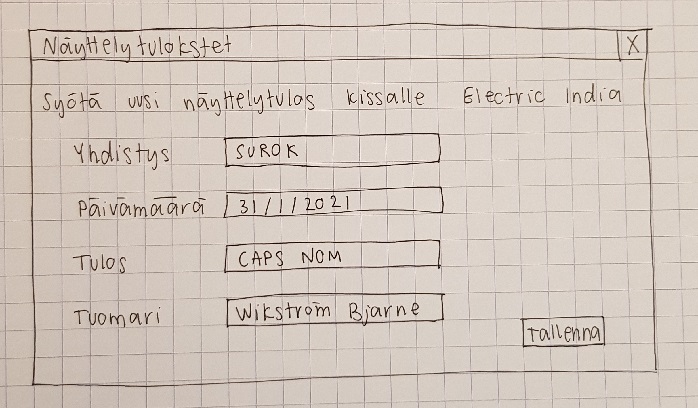 Näyttelytulokstet X
Syötä uusi näyttelytulos kissalle Electric India
Yhdistys SUROK
Päivämäärä 31/1/2021
Tulos CAPS NOM
Tuomari Wikström Bjarne
Tallenna